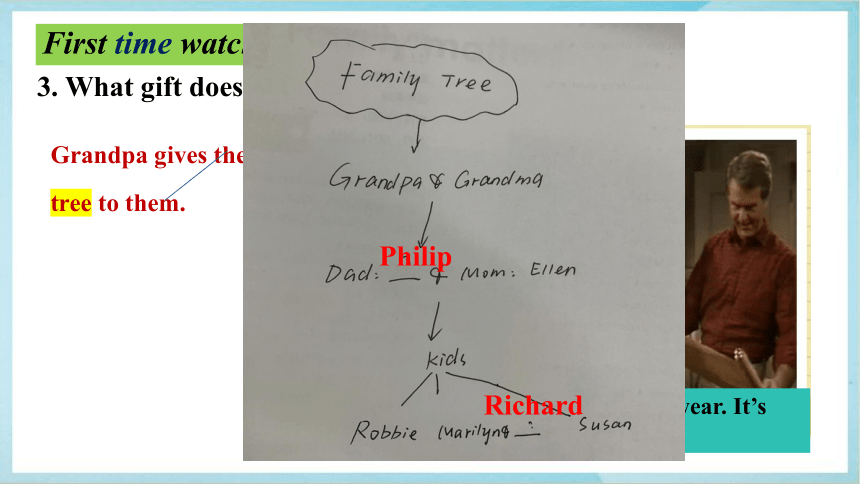 First time watc
3. What gift does
Grandpa gives the
tree to them.
Family Tree
Grandpa & Grandma
Philip
Dad: __ & Mom: Ellen
kids
Richard
Robbie Marilyn & __ Susan
year. It's